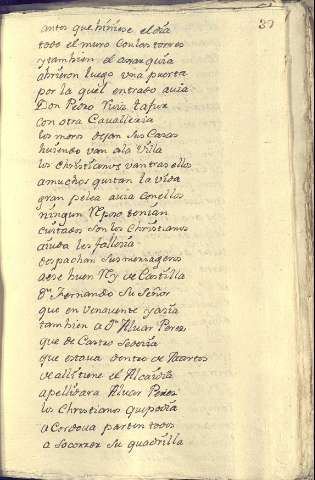 37
antes que hiniese el día
todo el muro con los torres
y tambien el axarquia
abrieron luego vna puerta
por la quel entrado auia
Don Pedro Ruiz tafur
con otra Cavalleria
los moros dejan sus Casas
huiendo van ala Villa
los christianos van tras ellos
a muchos quitan la vida
gran pelea auia con ellos
ningun Reposo tenian
cuitados son los Christianos
aiuda les fallesia
despachan sus mensageros
a ese buen Rey de Castilla
Dn Fernando su Señor
que en Venavente yazia
tambien a Dn Aluar Perez
que de Castro se dezia
que estava dentro de Martos
de alli tiene el Alcaidia
apellidara Aluar Perez
los Christianos que podia
a Cordova parten todos
a Socorrer su quadrilla